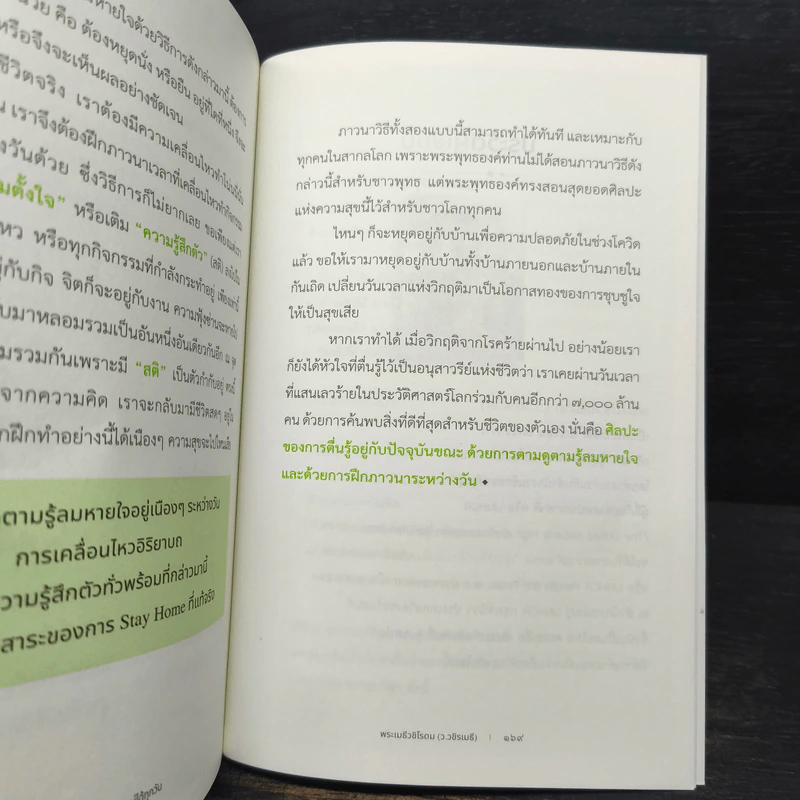 หายใจด้วยวิธีการดังกล่าวมานี้
คือ ต้องหยุดนั่ง หรือยืน อยู่ที่ใดที่หนึ่ง
หรือจึงจะเห็นผลอย่างชัดเจน
ชีวิตจริง เราต้องมีความเคลื่อนไหวทำโน่นนี่นั่น
เราจึงต้องฝึกภาวนาเวลาที่เคลื่อนไหวทำกิจกรรม
วันด้วย ซึ่งวิธีการก็ไม่ยากเลย ขอเพียงแค่เรา
ตั้งใจ” หรือเติม “ความรู้สึกตัว” (สติ) ลงไปใน
หว หรือทุกกิจกรรมที่กำลังกระทำอยู่ เพียงเท่านี้
กับกิจ จิตก็จะอยู่กับงาน ความฟุ้งซ่านจะหายไป
มาหลอมรวมเป็นอันหนึ่งอันเดียวกันอีก ณ จุด
รวมกันเพราะมี “สติ” เป็นตัวกำกับอยู่ ตอนนี้
จากความคิด เราจะกลับมามีชีวิตสดๆ อยู่ใน
ฝึกทำอย่างนี้ได้เนืองๆ ความสุขจะไปไหนเสีย
ตามรู้ลมหายใจอยู่เนืองๆ ระหว่างวัน
การเคลื่อนไหวอิริยาบถ
ความรู้สึกตัวทั่วพร้อมที่กล่าวมานี้
สาระของการ Stay Home ที่แท้จริง
ได้ทุกวัน
ภาวนาวิธีทั้งสองแบบนี้สามารถทำได้ทันที และเหมาะกับ
ทุกคนในสากลโลก เพราะพระพุทธองค์ท่านไม่ได้สอนภาวนาวิธีดัง
กล่าวนี้สำหรับชาวพุทธ แต่พระพุทธองค์ทรงสอนสุดยอดศิลปะ
แห่งความสุขนี้ไว้สำหรับชาวโลกทุกคน
ไหนๆ ก็จะหยุดอยู่กับบ้านเพื่อความปลอดภัยในช่วงโควิด
แล้ว ขอให้เรามาหยุดอยู่กับบ้านทั้งบ้านภายนอกและบ้านภายใน
กันเถิด เปลี่ยนวันเวลาแห่งวิกฤติมาเป็นโอกาสทองของการชุบชูใจ
ให้เป็นสุขเสีย
หากเราทำได้ เมื่อวิกฤติจากโรคร้ายผ่านไป อย่างน้อยเรา
ก็ยังได้หัวใจที่ตื่นรู้ไว้เป็นอนุสาวรีย์แห่งชีวิตว่า เราเคยผ่านวันเวลา
ที่แสนเลวร้ายในประวัติศาสตร์โลกร่วมกับคนอีกกว่า ๗,๐๐๐ ล้าน
คน ด้วยการค้นพบสิ่งที่ดีที่สุดสำหรับชีวิตของตัวเอง นั่นคือ ศิลปะ
ของการตื่นรู้อยู่กับปัจจุบันขณะ ด้วยการตามดูตามรู้ลมหายใจ
และด้วยการฝึกภาวนาระหว่างวัน ◆
พระเมธีวชิโรดม (ว.วชิรเมธี) | ๑๖๙